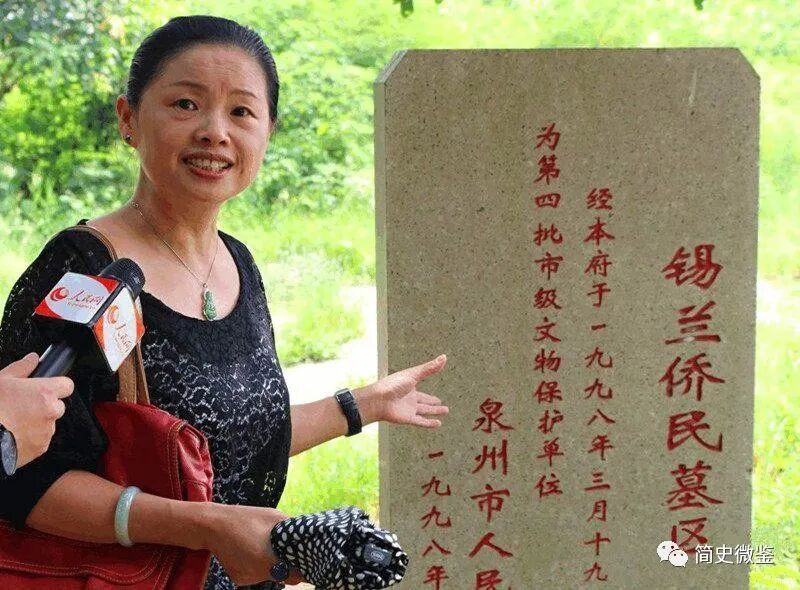 锡兰侨民墓区
经本府于一九九八年三月十九
为第四批市级文物保护单位
泉州市人民
一九九八年
人民网
简史微鉴